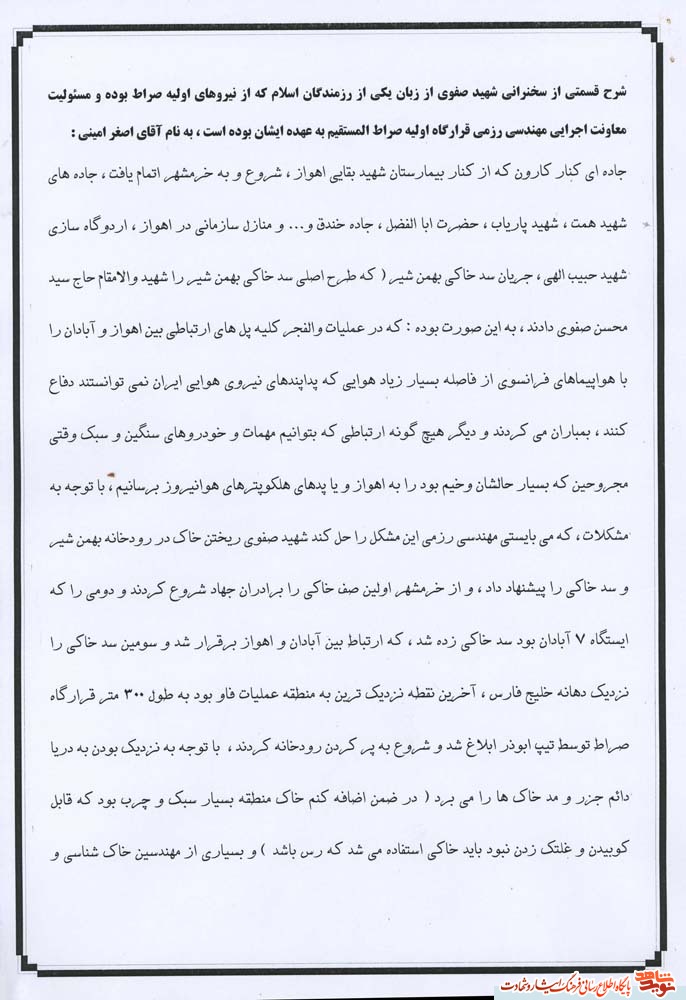 شرح قسمتی از سخنرانی شهید صفوی از زبان یکی از رزمندگان اسلام که از نیروهای اولیه صراط بوده و مسئولیت
معاونت اجرایی مهندسی رزمی قرارگاه اولیه صراط المستقیم به عهده ایشان بوده است ، به نام آقای اصغر امینی :
جاده ای کنار کارون که از کنار بیمارستان شهید بقایی اهواز ، شروع و به خرمشهر اتمام یافت ، جاده های
شهید همت ، شهید پاریاب ، حضرت ابا الفضل ، جاده خندق و... و منازل سازمانی در اهواز ، اردوگاه سازی
شهید حبیب الهی ، جریان سد خاکی بهمن شیر ( که طرح اصلی سد خاکی بهمن شیر را شهید والامقام حاج سید
محسن صفوی دادند ، به این صورت بوده : که در عملیات والفجر کلیه پل های ارتباطی بین اهواز و آبادان را
با هواپیماهای فرانسوی از فاصله بسیار زیاد هوایی که پدافندهای نیروی هوایی ایران نمی توانستند دفاع
کنند ، بمباران می کردند و دیگر هیچ گونه ارتباطی که بتوانیم مهمات و خودروهای سنگین و سبک وقتی
مجروحین که بسیار حالشان وخیم بود را به اهواز و یا پدهای هلکوپترهای هوانیروز برسانیم ، با توجه به
مشکلات ، که می بایستی مهندسی رزمی این مشکل را حل کند شهید صفوی ریختن خاک در رودخانه بهمن شیر
و سد خاکی را پیشنهاد داد ، و از خرمشهر اولین صف خاکی را برادران جهاد شروع کردند و دومی را که
ایستگاه ۷ آبادان بود سد خاکی زده شد ، که ارتباط بین آبادان و اهواز برقرار شد و سومین سد خاکی را
نزدیک دهانه خلیج فارس ، آخرین نقطه نزدیک ترین به منطقه عملیات فاو بود به طول ۳۰۰ متر قرارگاه
صراط توسط تیپ ابوذر ابلاغ شد و شروع به پر کردن رودخانه کردند ، با توجه به نزدیک بودن به دریا
دائم جزر و مد خاک ها را می برد ( در ضمن اضافه کنم خاک منطقه بسیار سبک و چرب بود که قابل
کوبیدن و غلتک زدن نبود باید خاکی استفاده می شد که رس باشد ) و بسیاری از مهندسین خاک شناسی و
نوید شاهد
پایگاه اطلاع رسانی فرهنگ ایثار و شهادت